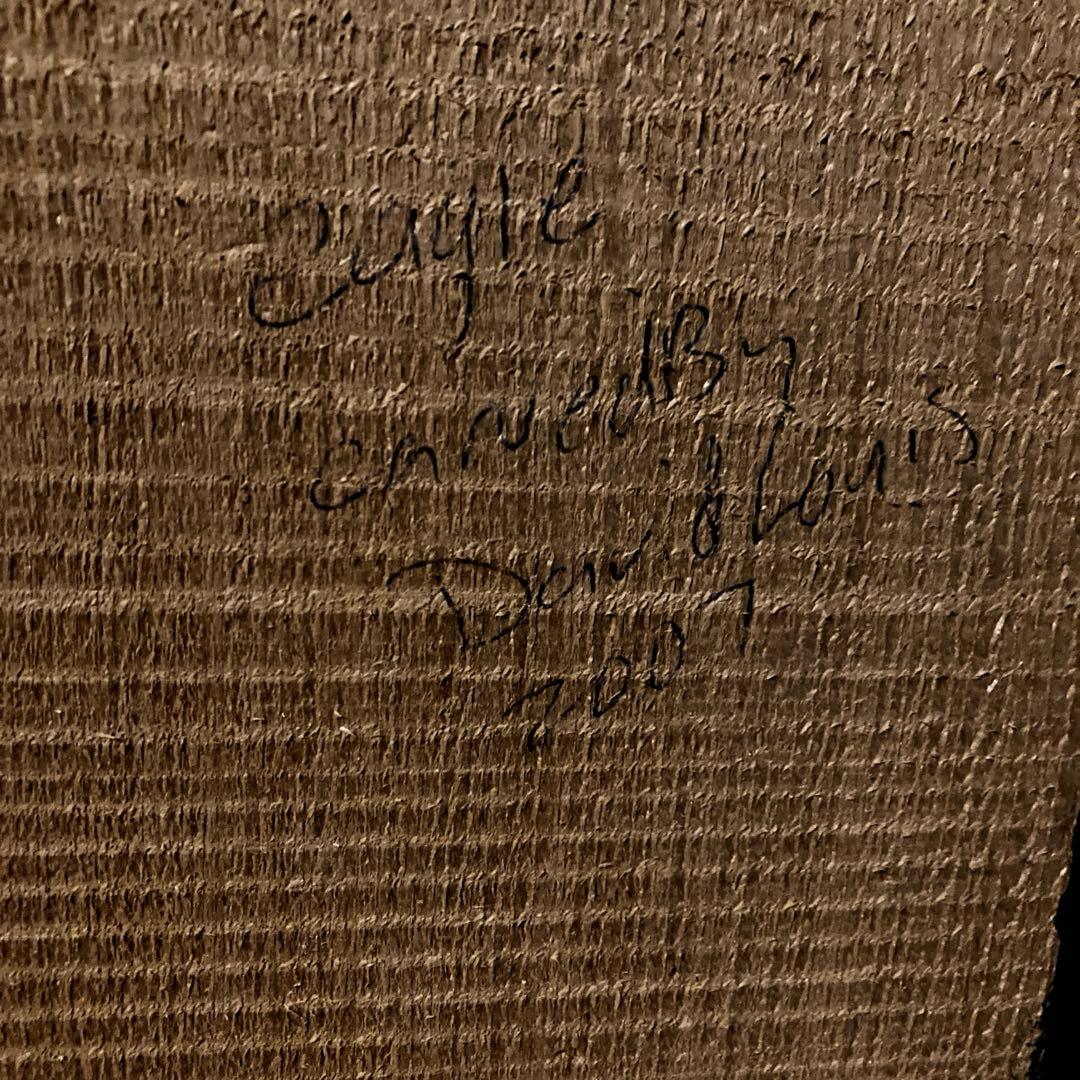 Eagle
carved By
David Louis
2007